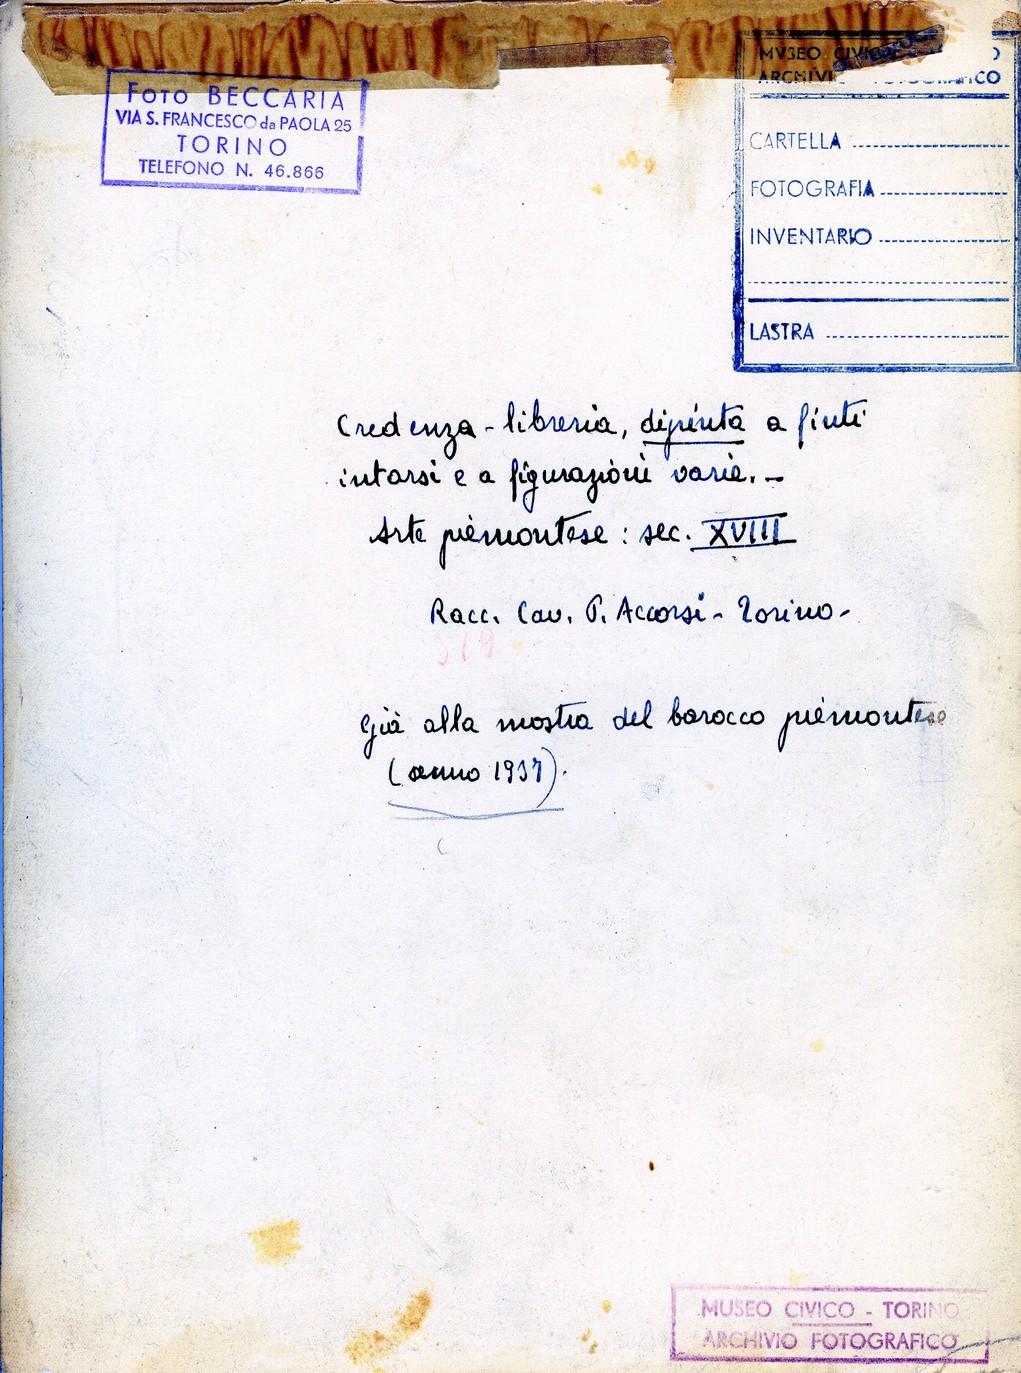 Foto BECCARIA
VIA S. FRANCESCO da PAOLA 25
TORINO
TELEFONO N. 46.866
MVSEO CIVICO
ARCHIVIO FOTOGRAFICO
CARTELLA
FOTOGRAFIA
INVENTARIO
LASTRA
Credenza - libreria, dipinta a finti
intarsi e a figurazioni varie. -
Arte piemontese : sec. XVIII
Racc. Cav. P. Accorsi - Torino -
319
Già alla mostra del barocco piemontese
(anno 1937).
MUSEO CIVICO - TORINO
ARCHIVIO FOTOGRAFICO